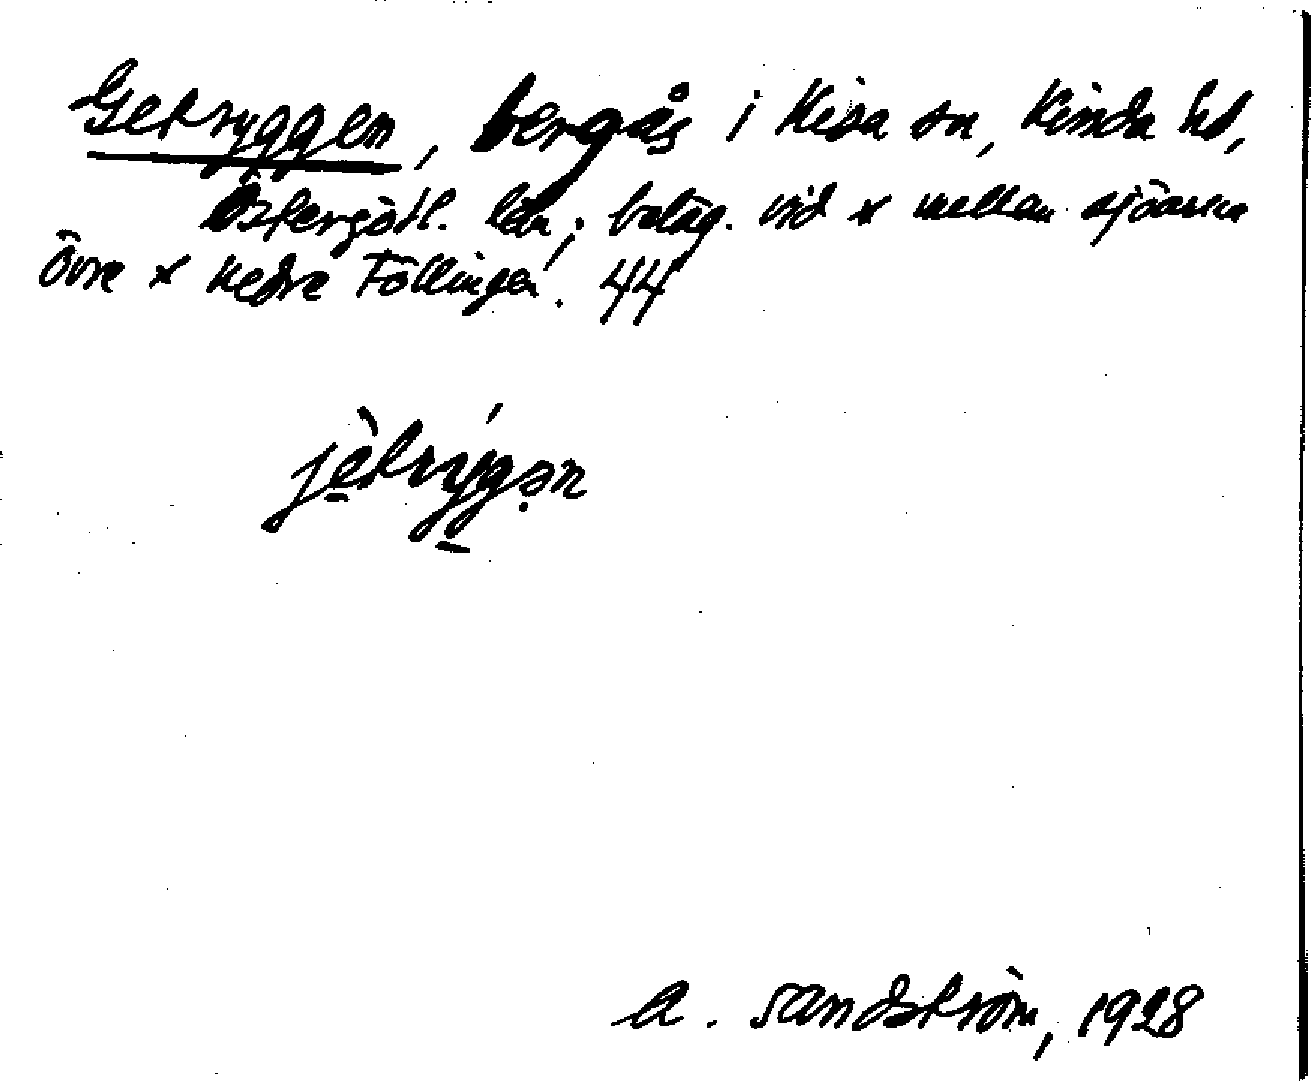 Getryggen, bergås i Kisa sn, Kinda hd,
Östergötl. län; beläg. vid x mellan sjöarna
Övre x Nedre Föllingen. 44
jètrýgən
A. Sandström, 1928